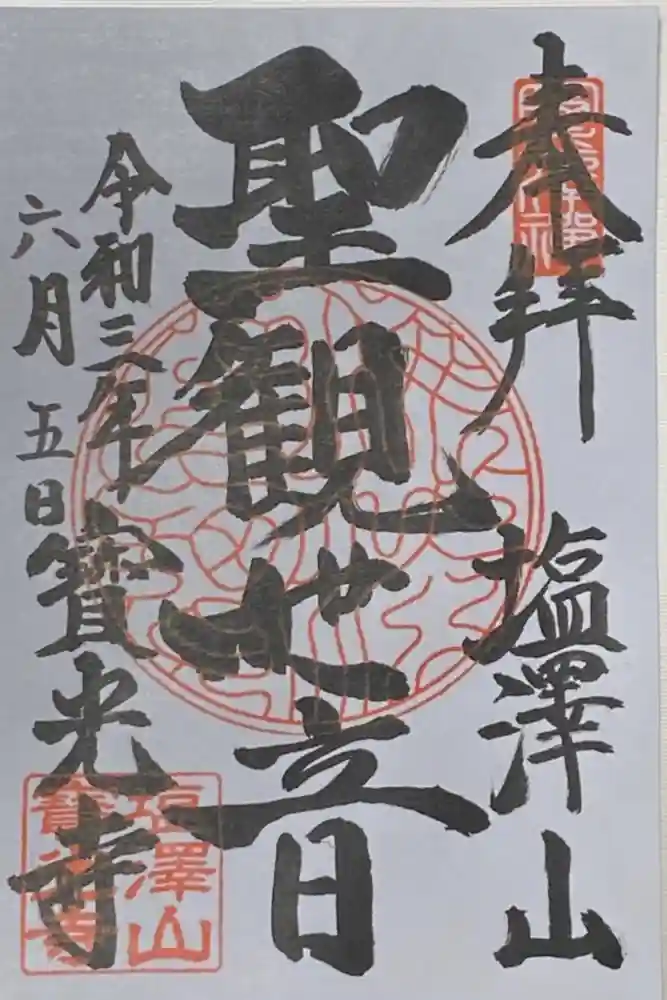 奉拝
塩澤山
聖観世音
令和三年
六月五日
寳光寺
塩澤山
寳光寺